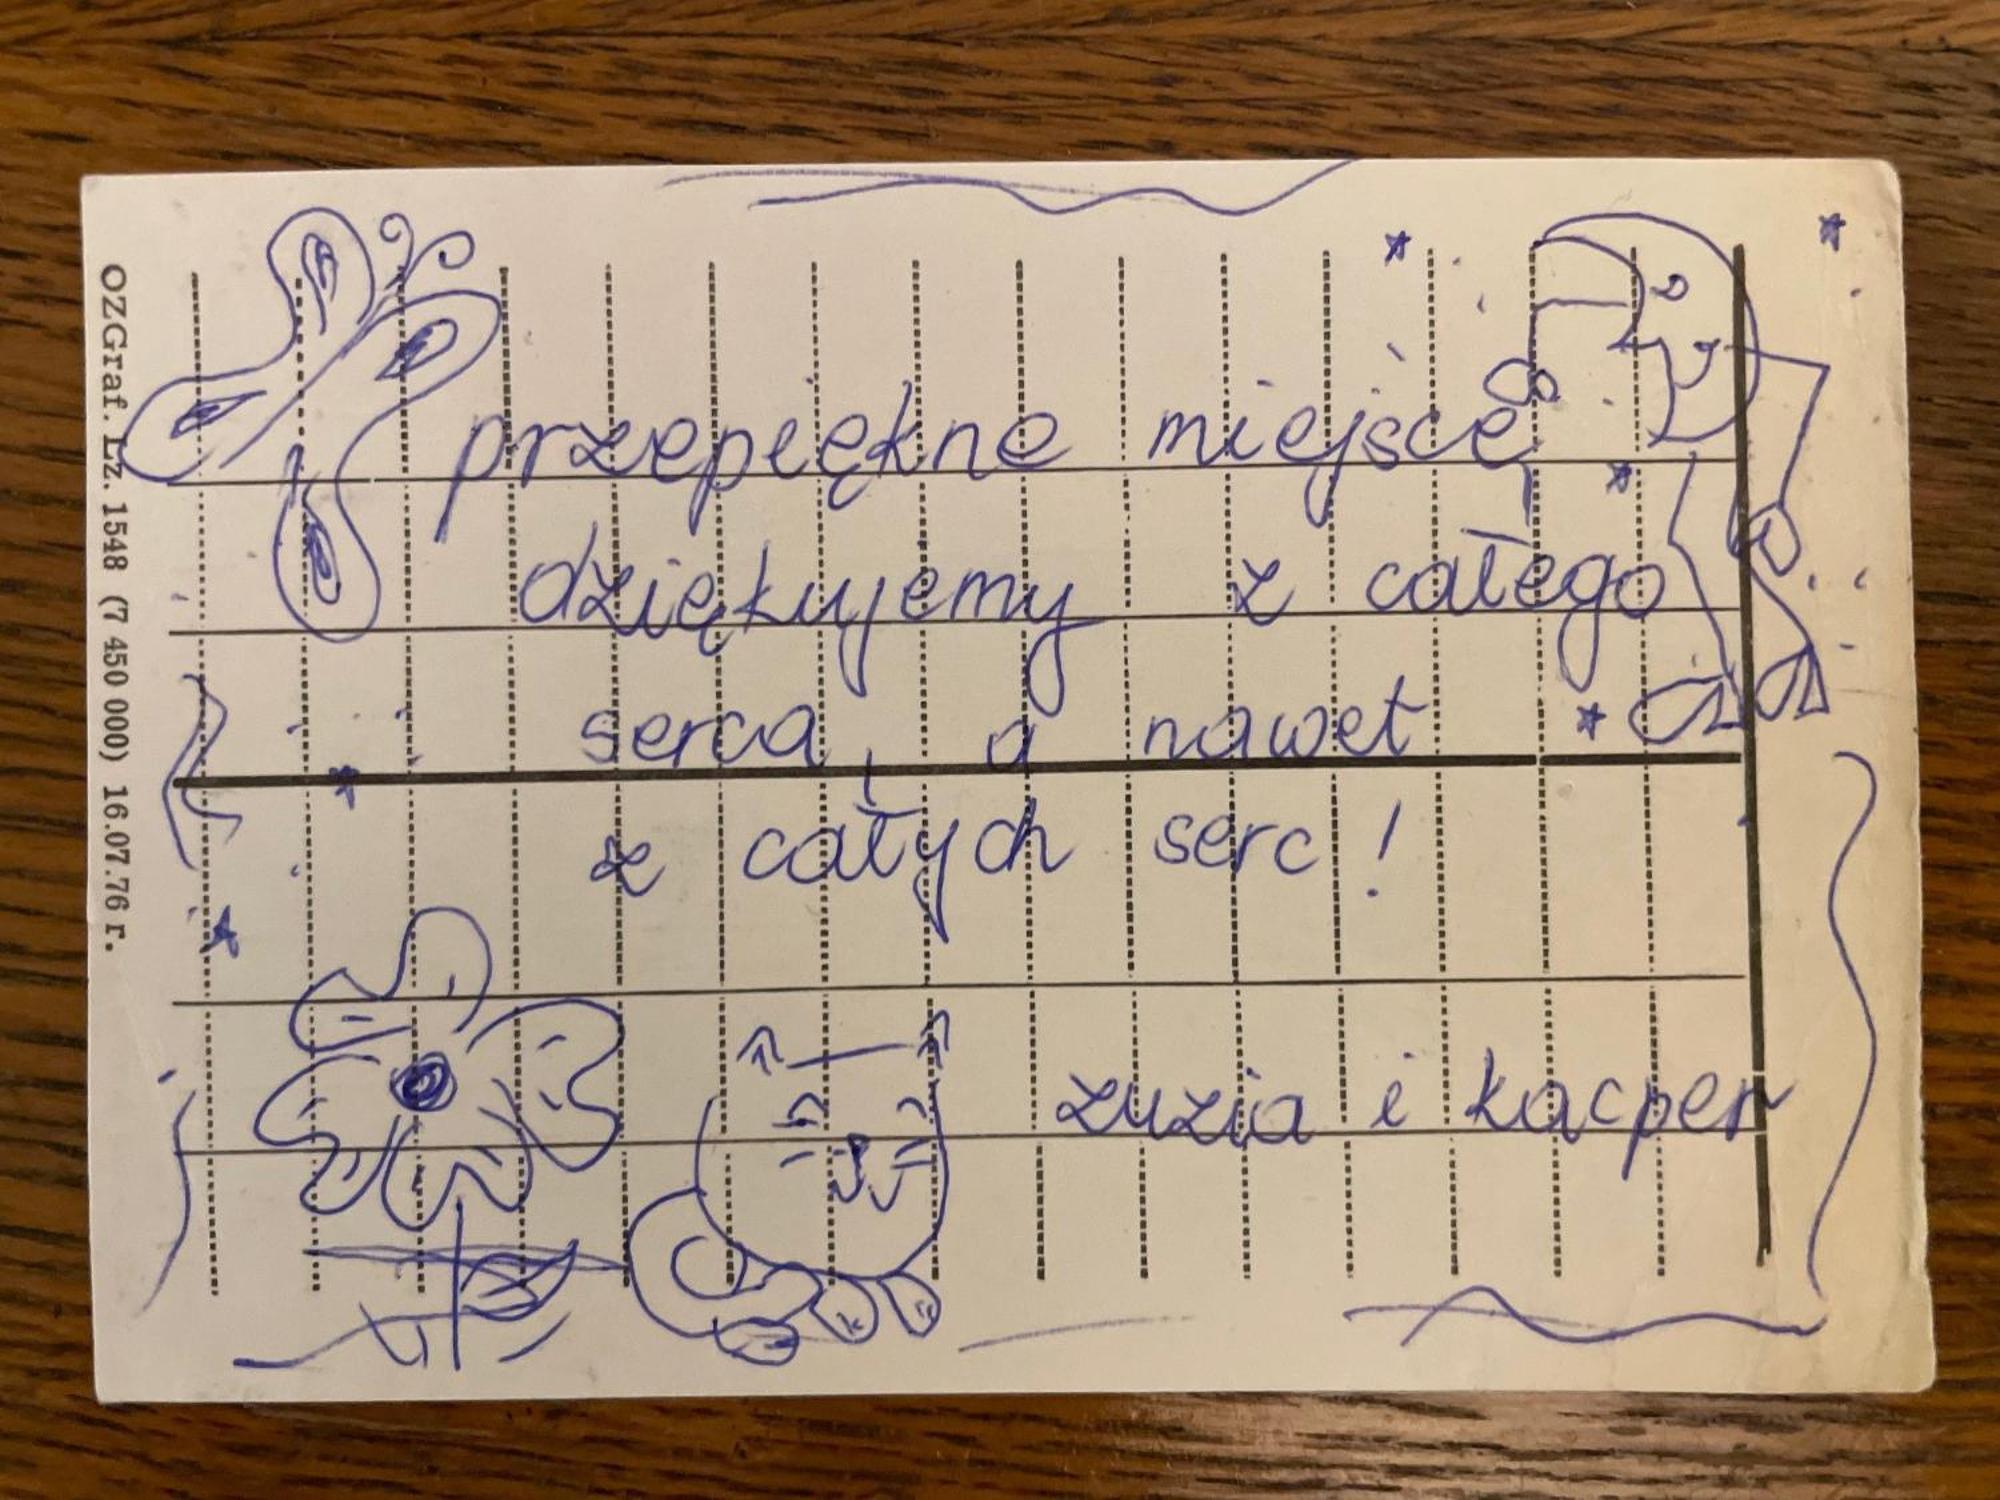 przepiękne miejsce,
dziękujemy z całego
serca, a nawet
z całych serc!
zuzia i kacper
OZGraf. Lz. 1548 (7 450 000) 16.07.76 r.